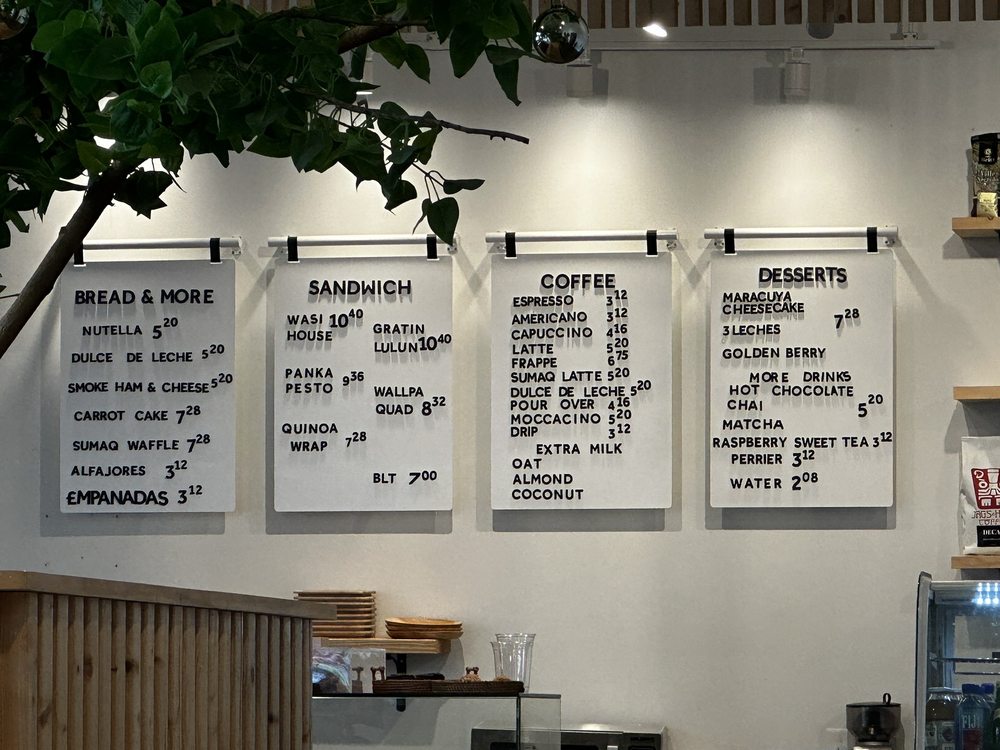 BREAD & MORE
NUTELLA 5 20
DULCE DE LECHE 5 20
SMOKE HAM & CHEESE 5 20
CARROT CAKE 7 28
SUMAQ WAFFLE 7 28
ALFAJORES 3 12
EMPANADAS 3 12
SANDWICH
WASI 10 40
HOUSE
GRATIN
LULUN 10 40
PANKA
PESTO 9 36
WALLPA
QUAD 8 32
QUINOA
WRAP 7 28
BLT 7 00
COFFEE
ESPRESSO 3 12
AMERICANO 3 12
CAPUCCINO 4 16
LATTE 5 20
FRAPPE 6 75
SUMAQ LATTE 5 20
DULCE DE LECHE 5 20
POUR OVER 4 16
MOCCACINO 5 20
DRIP 3 12
EXTRA MILK
OAT
ALMOND
COCONUT
DESSERTS
MARACUYA
CHEESECAKE
3 LECHES 7 28
GOLDEN BERRY
MORE DRINKS
HOT CHOCOLATE
CHAI 5 20
MATCHA
RASPBERRY SWEET TEA 3 12
PERRIER 3 12
WATER 2 08
FIJI